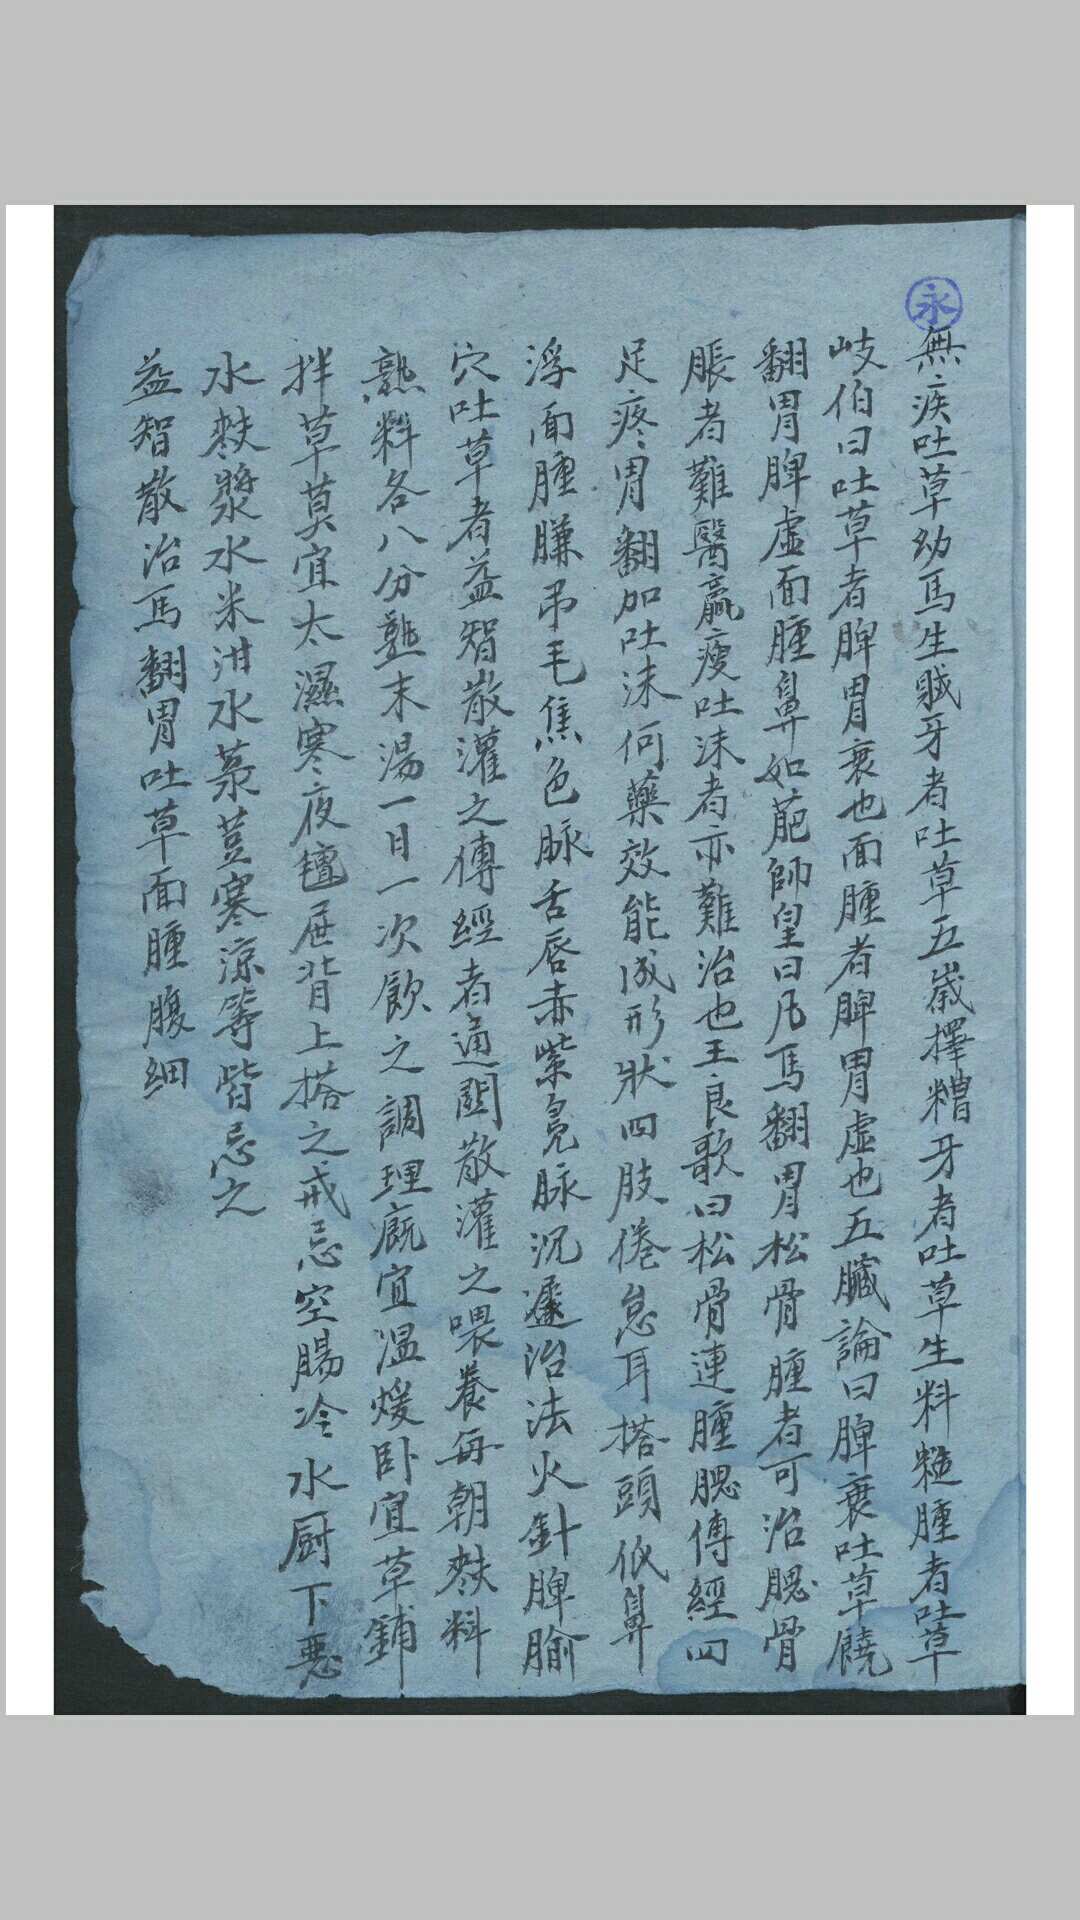 永
無疾吐草幼馬生賊牙者吐草五歲擇糟牙者吐草生料糙腫者吐草
岐伯曰吐草者脾胃衰也面腫者脾胃虛也五臟論曰脾衰吐草饒
翻胃脾虛面腫鼻如葩師皇曰凡馬翻胃松骨腫者可治腮骨
脹者難醫羸瘦吐沫者亦難治也王良歌曰松骨連腫腮傳經四
足疼胃翻加吐沫何藥效能成形狀四肢倦怠耳搭頭低鼻
浮面腫膁吊毛焦色脉舌唇赤紫亮脉沉遲治法火針脾腧
穴吐草者益智散灌之傳經者通關散灌之喂養每朝麩料
熟料各八分塩末湯一日一次飲之調理廐宜温煖卧宜草鋪
拌草莫宜太濕寒夜氊屉背上搭之戒忌空腸冷水厨下惡
水麩漿水米泔水菉荳寒凉等皆忌之
益智散治馬翻胃吐草面腫腹細